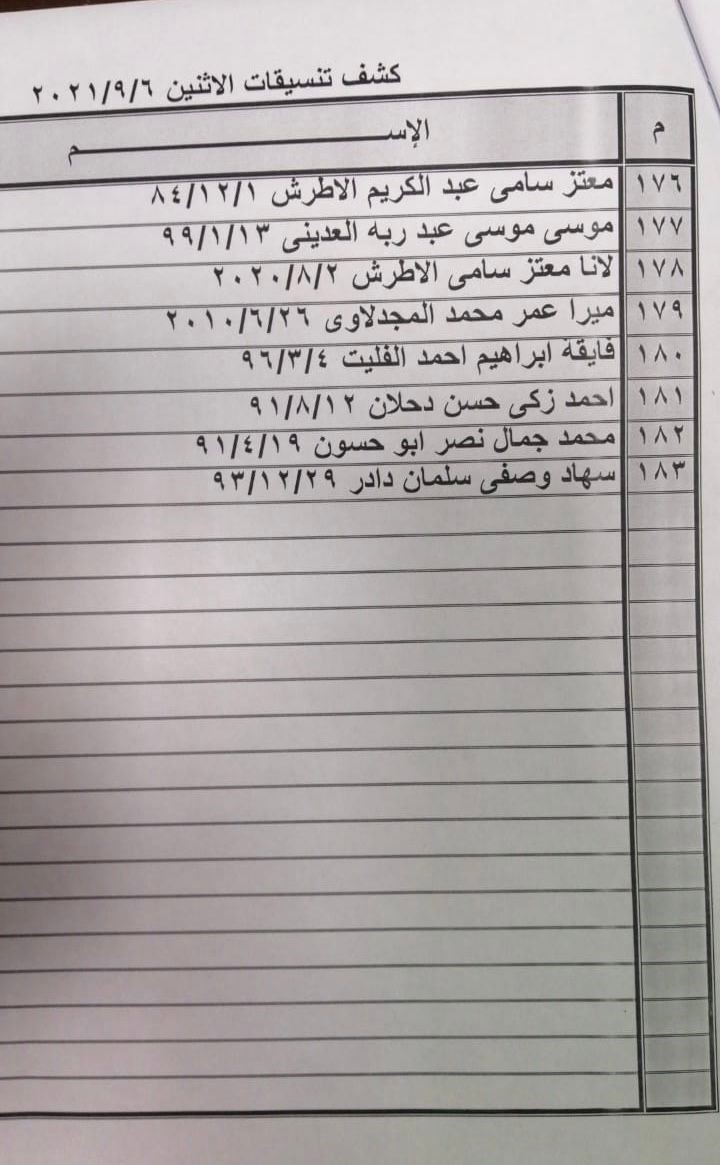 كشف تنسيقات الاثنين ٢٠٢١/٩/٦
م الإســــم
١٧٦ معتز سامى عبد الكريم الاطرش ٨٤/١٢/١
١٧٧ موسى موسى عبد ربه العدينى ٩٩/١/١٣
١٧٨ لانا معتز سامى الاطرش ٢٠٢٠/٨/٢
١٧٩ ميرا عمر محمد المجدلاوى ٢٠١٠/٦/٢٦
١٨٠ فايقة ابراهيم احمد الفليت ٩٦/٣/٤
١٨١ احمد زكى حسن دحلان ٩١/٨/١٢
١٨٢ محمد جمال نصر ابو حسون ٩١/٤/١٩
١٨٣ سهاد وصفى سلمان دادر ٩٣/١٢/٢٩